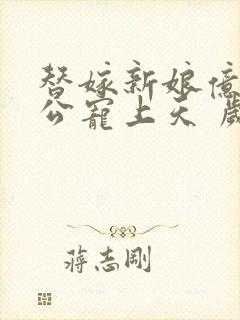 替嫁新娘億
公寵上天
蔣志剛